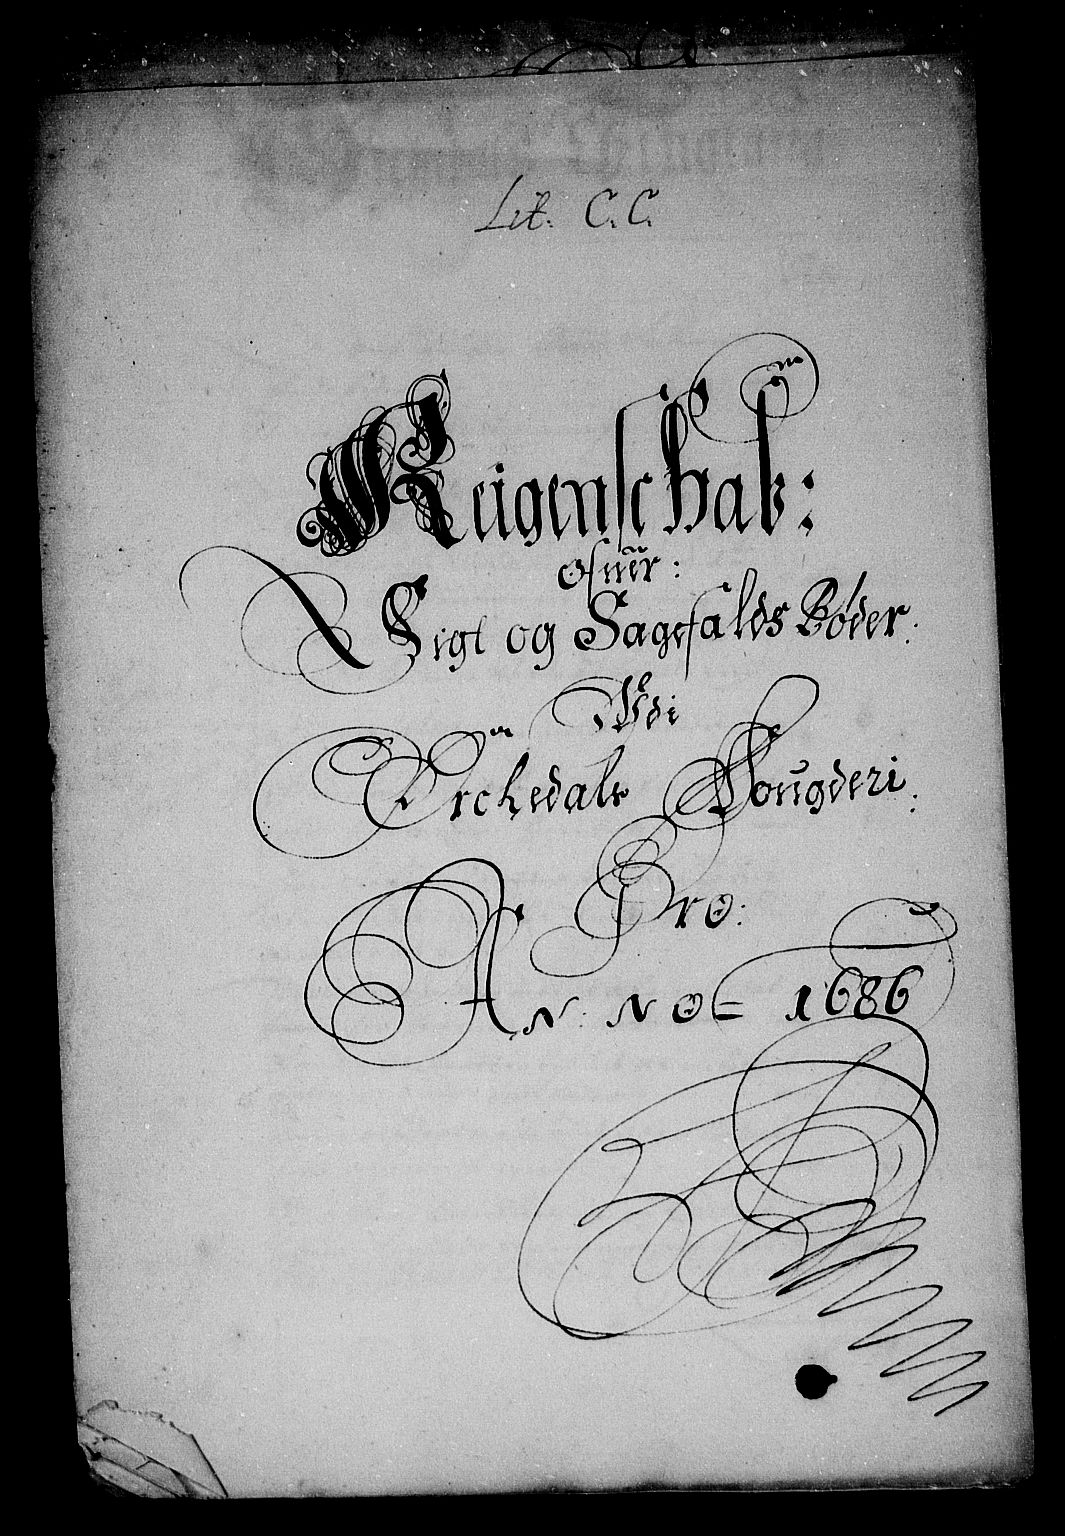 Lit. C. C.
Reigenschab:
ofuer:
Sigt og Sagefalds Bøder.
Udi
Orchedals Fougderi.
Pro:
AN: NO= 1686